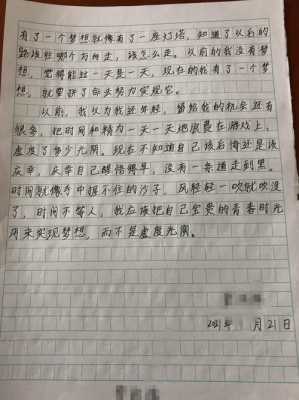 有了一个梦想就像有了一座灯塔，知道了以后的
路该往哪个方向走，该怎么走。以前的我没有梦
想，觉得能过一天是一天，现在的我有了一个梦
想，就要拼了命去努力实现它。
以前，我认为我还年轻，留给我的机会还有
很多，把时间和精力一天一天地浪费在游戏上，
虚度了多少光阴。现在不知道自己该后悔还是该
庆幸，庆幸自己醒悟得早，没有一条道走到黑。
时间就像手中握不住的沙子，风轻轻一吹就吹没
了，时间不等人，我应该把自己宝贵的青春时光
用来实现梦想，而不是虚度光阴。
2021年 月21日